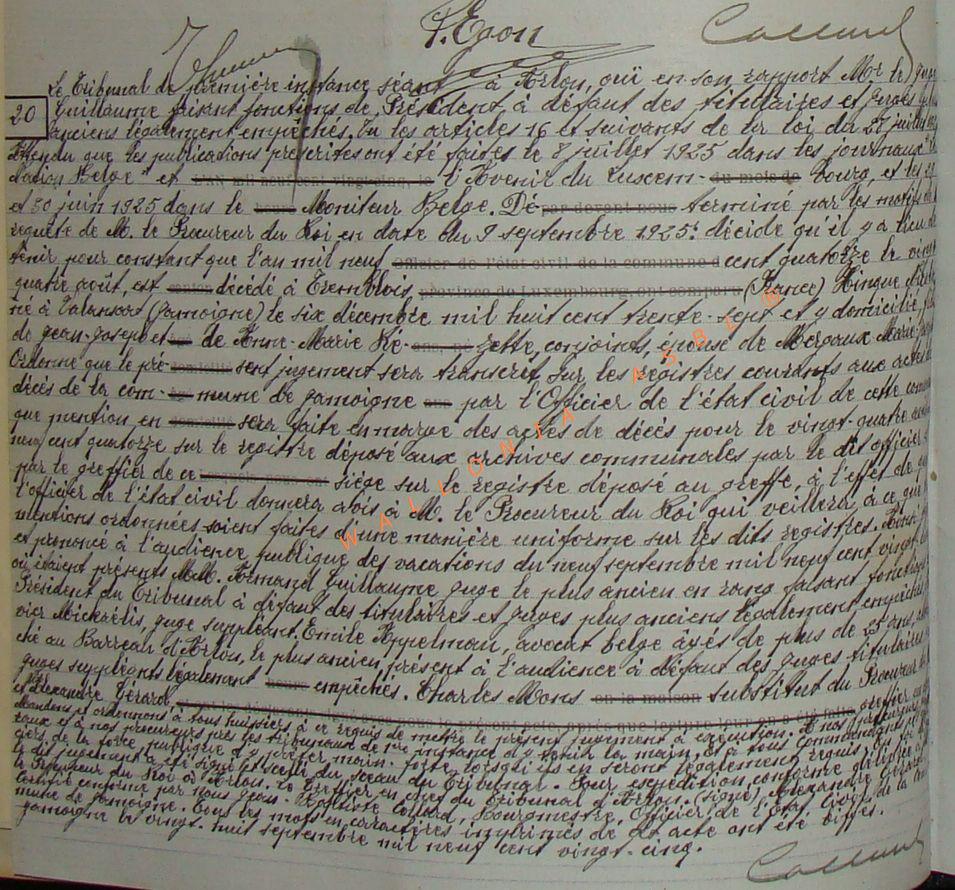 P. Egon
Collard
20
Le Tribunal de première instance séant à Arlon, ouï en son rapport Mr le Juge
Guillaume faisant fonctions de Président, à défaut des titulaires et Juges
anciens légalement empêchés. Vu les articles 16 et suivants de la loi du 27 juillet
Attendu que les publications prescrites ont été faites le 8 juillet 1925 dans les journaux
Nation Belge" et L'AN mil neuf cent vingt-cinq, le l'Avenir du Luxem- du mois de bourg, et les
et 30 juin 1925 dans le Moniteur Belge. Dé par devant nous terminé par les motifs
requête de M. le Procureur du Roi en date du 9 septembre 1925: décide qu'il y a lieu de
tenir pour constant que l'an mil neuf officier de l'état civil de la commune d cent quatorze le vingt
quatre août, est décédé à Tremblois province de Luxembourg, ont comparu (France) Hinque
né à Valansart (Jamoigne) le six décembre mil huit cent trente-sept et y domicilié, fils
de Jean-Joseph et de Anne-Marie Ré- zette, conjoints, époux de Mergaux Marie
Ordonne que le pré- domicilié sent jugement sera transcrit sur les registres courants aux actes de
décès de la com- mune de Jamoigne par l'Officier de l'état civil de cette commune
que mention en domicilié sera faite en marge des actes de décès pour le vingt-quatre août
neuf cent quatorze sur le registre déposé aux archives communales par le dit officier
par le greffier de ce siège sur le registre déposé au greffe, à l'effet de quoi
l'officier de l'état civil donnera avis à M. le Procureur du Roi qui veillera à ce que
mentions ordonnées soient faites d'une manière uniforme sur les dits registres. Ainsi
et prononcé à l'audience publique des vacations du neuf septembre mil neuf cent vingt
où étaient présents MM. Armand Guillaume, juge le plus ancien en rang faisant fonctions
Président du Tribunal à défaut des titulaires et juges plus anciens légalement empêchés
vier Michaëlis, juge suppléant, Emile Appelman, avocat belge âgés de plus de 25 ans,
ché au Barreau d'Arlon, le plus ancien, présent à l'audience à défaut des juges titulaires
juges suppléants légalement empêchés. Charles Mons en la maison substitut du Procureur
et Alexandre Gérard greffier
Mandons et ordonnons à tous huissiers, à ce requis de mettre le présent jugement à exécution. A nos
raux et à nos procureurs près les tribunaux de 1re instance d'y tenir la main. Et à tous commandants
ciers de la force publique d'y prêter main-forte lorsqu'ils en seront légalement requis. En foi
le dit jugement a été signé et scellé du sceau du Tribunal. Pour expédition conforme délivrée à
le Procureur du Roi à Arlon. Le Greffier en chef du Tribunal d'Arlon. (signé) Alexandre Gérard.
Certifié conforme par nous Jean-Baptiste Collard, Bourgmestre, Officier de l'état civil de la com
mune de Jamoigne. Tous les mots en caractères imprimés de cet acte ont été biffés.
Jamoigne le vingt-huit septembre mil neuf cent vingt-cinq.
Collard
WALLONIA ASBL W